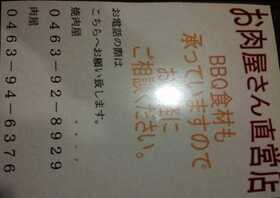 お肉屋さん直営店
BBQ食材も
承っていますので
お気軽に
ご相談ください。
お電話の際は
こちらへお願い致します。
焼肉屋
0463-92-8929
肉屋
0463-9